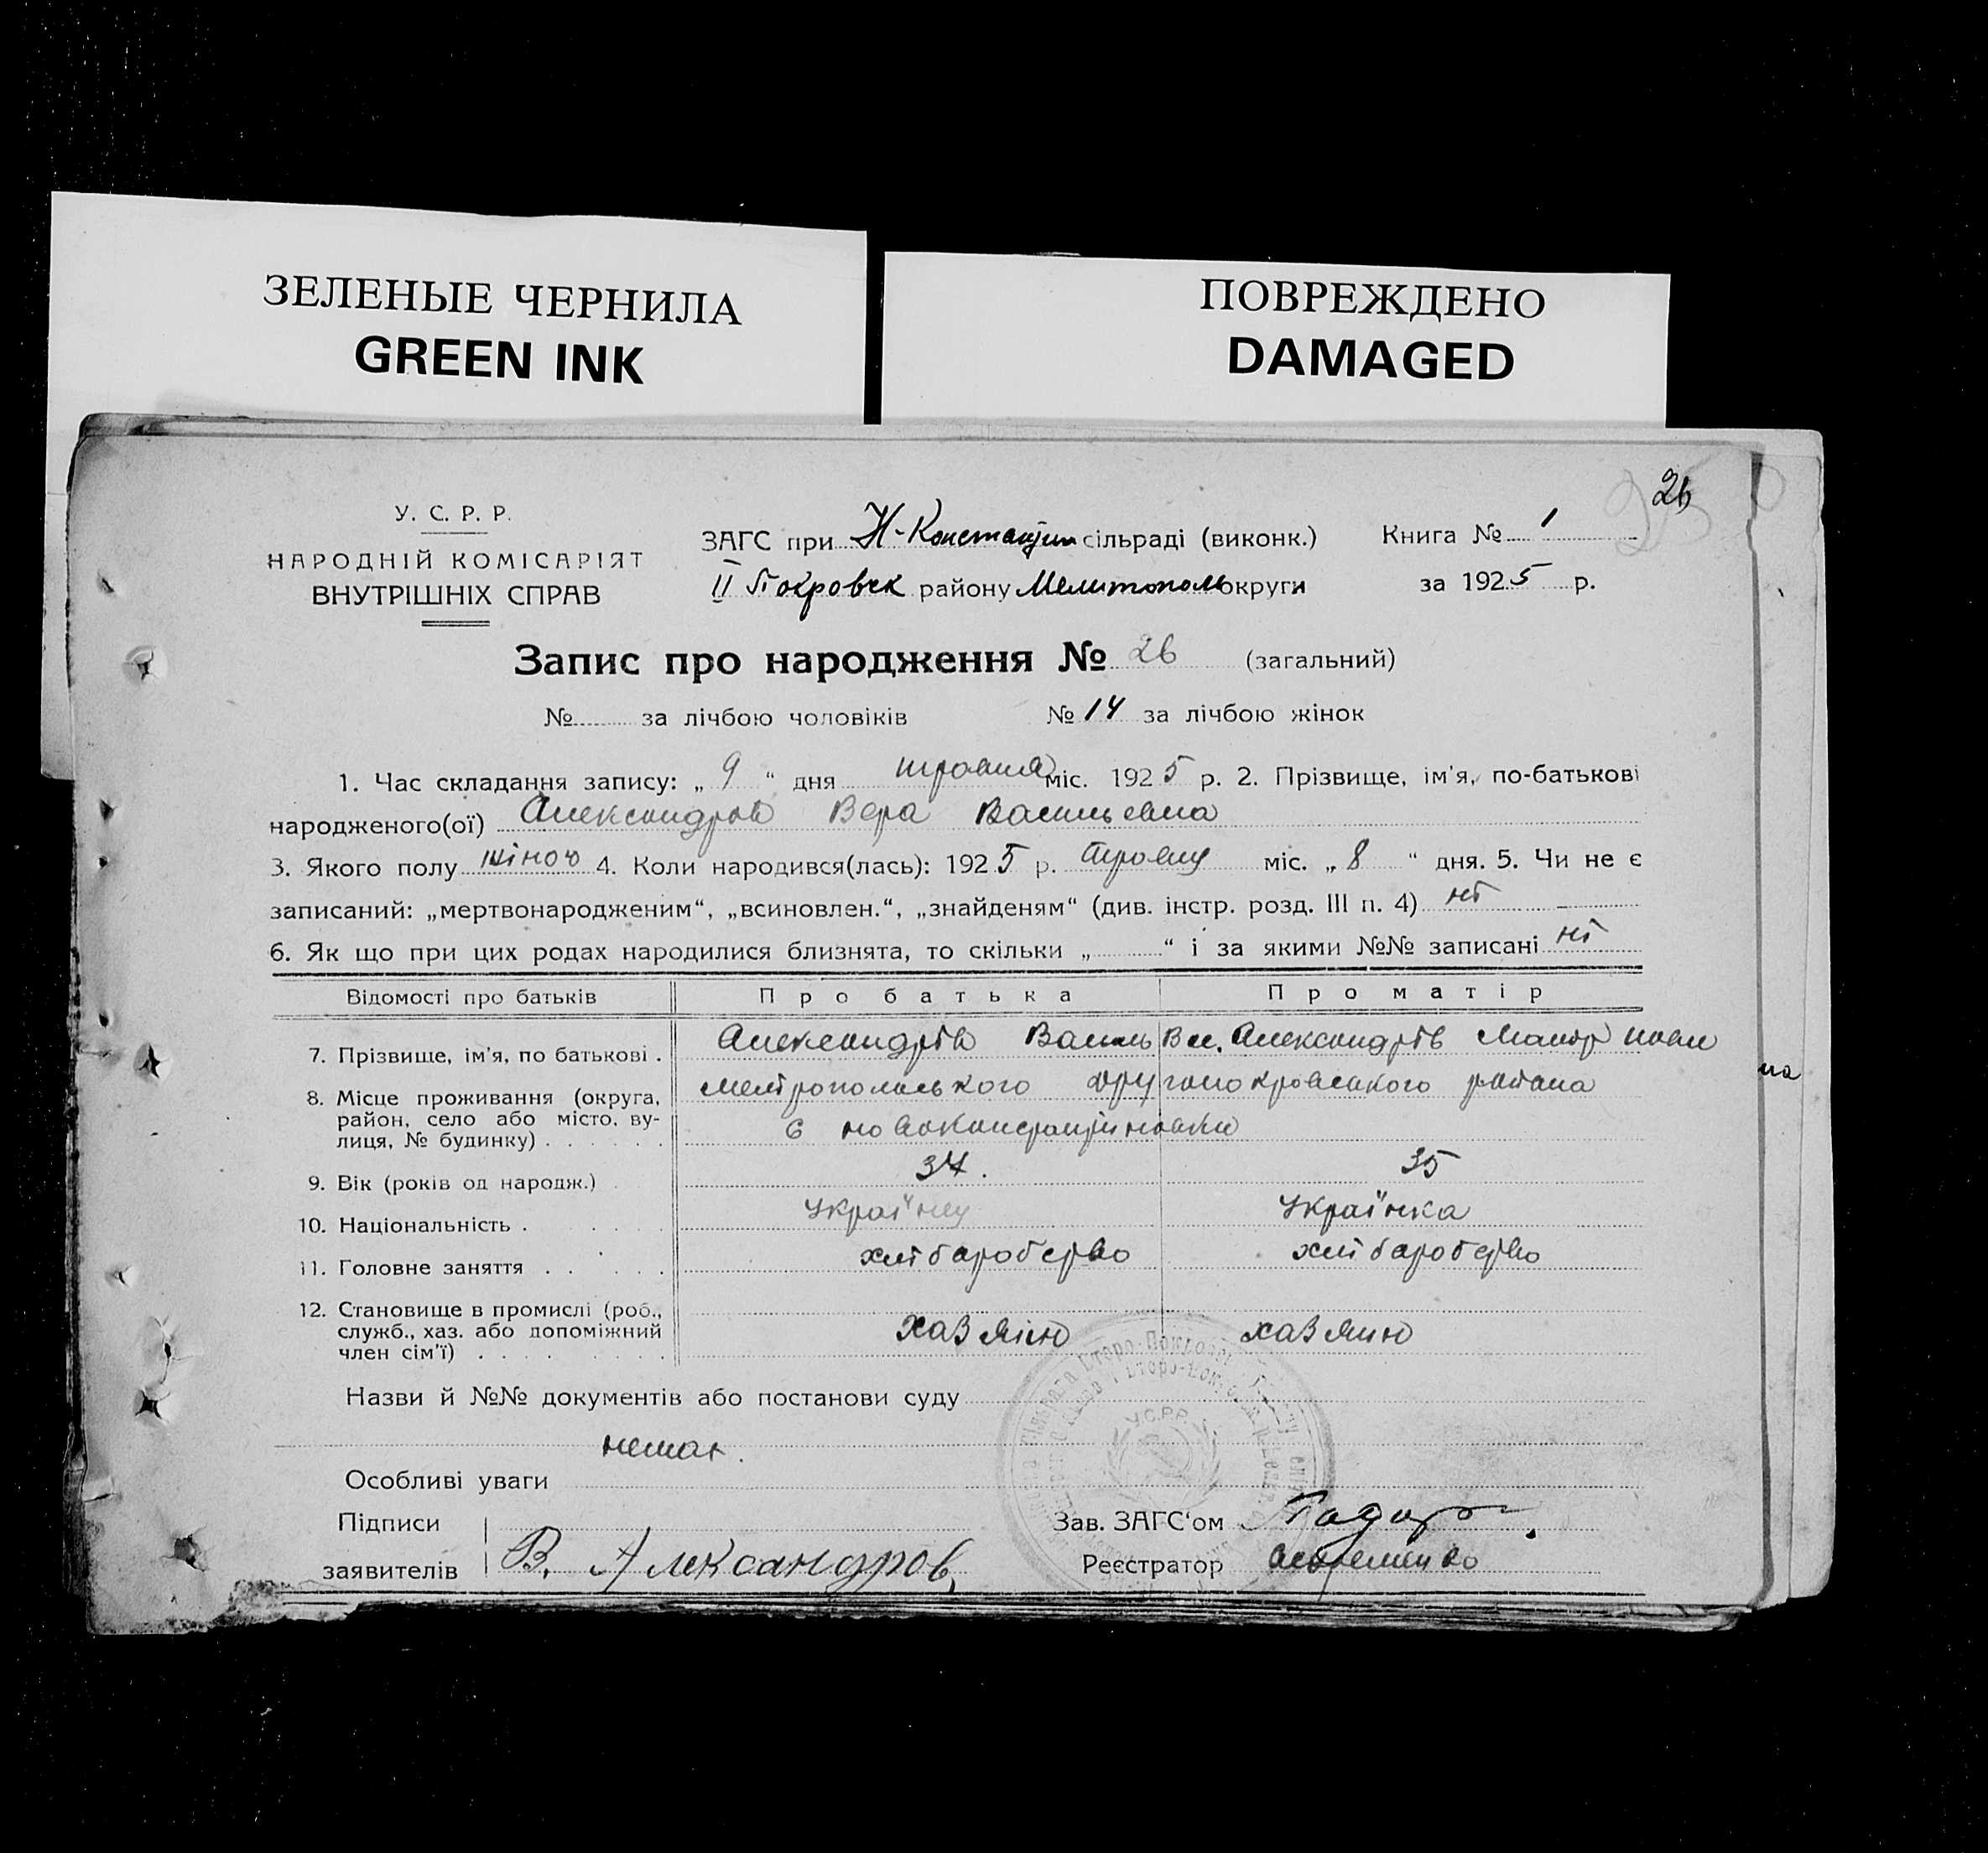 ЗЕЛЕНЫЕ ЧЕРНИЛА
GREEN INK
ПОВРЕЖДЕНО
DAMAGED
26
У. С. Р. Р.
НАРОДНІЙ КОМІСАРІЯТ
ВНУТРІШНІХ СПРАВ
ЗАГС при Н-Константин сільраді (виконк.) Книга № 1
II Покровск району Мелитополь округи за 1925 р.
Запис про народження № 26 (загальний)
№ за лічбою чоловіків № 14 за лічбою жінок
1. Час складання запису: „ 9 “ дня травня міс. 1925 р. 2. Прізвище, ім'я, по-батькові
народженого(ої) Александров Вера Васильевна
3. Якого полу жіного 4. Коли народився(лась): 1925 р. травню міс. „ 8 “ дня. 5. Чи не є
записаний: „мертвонародженим“, „всиновлен.“, „знайденям“ (див. інстр. розд. III п. 4) ні
6. Як що при цих родах народилися близнята, то скільки „ “ і за якими №№ записані ні
Відомості про батьків Про батька Про матір
7. Прізвище, ім'я, по батькові . Александрів Василь Вас. Александрів
8. Місце проживання (округа, район, село або місто, вулиця, № будинку) Другопокровського района
с новоконстантиновки
9. Вік (років од народж.) 34. 35
10. Національність . Українец Українка
11. Головне заняття . . хлібаробство хлібаробство
12. Становище в промислі (роб.,
служб., хаз. або допоміжний
член сім'ї) хазяіно хазяіно
Назви й №№ документів або постанови суду
немає.
Особливі уваги
У.С.Р.Р.
Підписи
заявителів В. Александров
Зав. ЗАГС'ом
Реєстратор